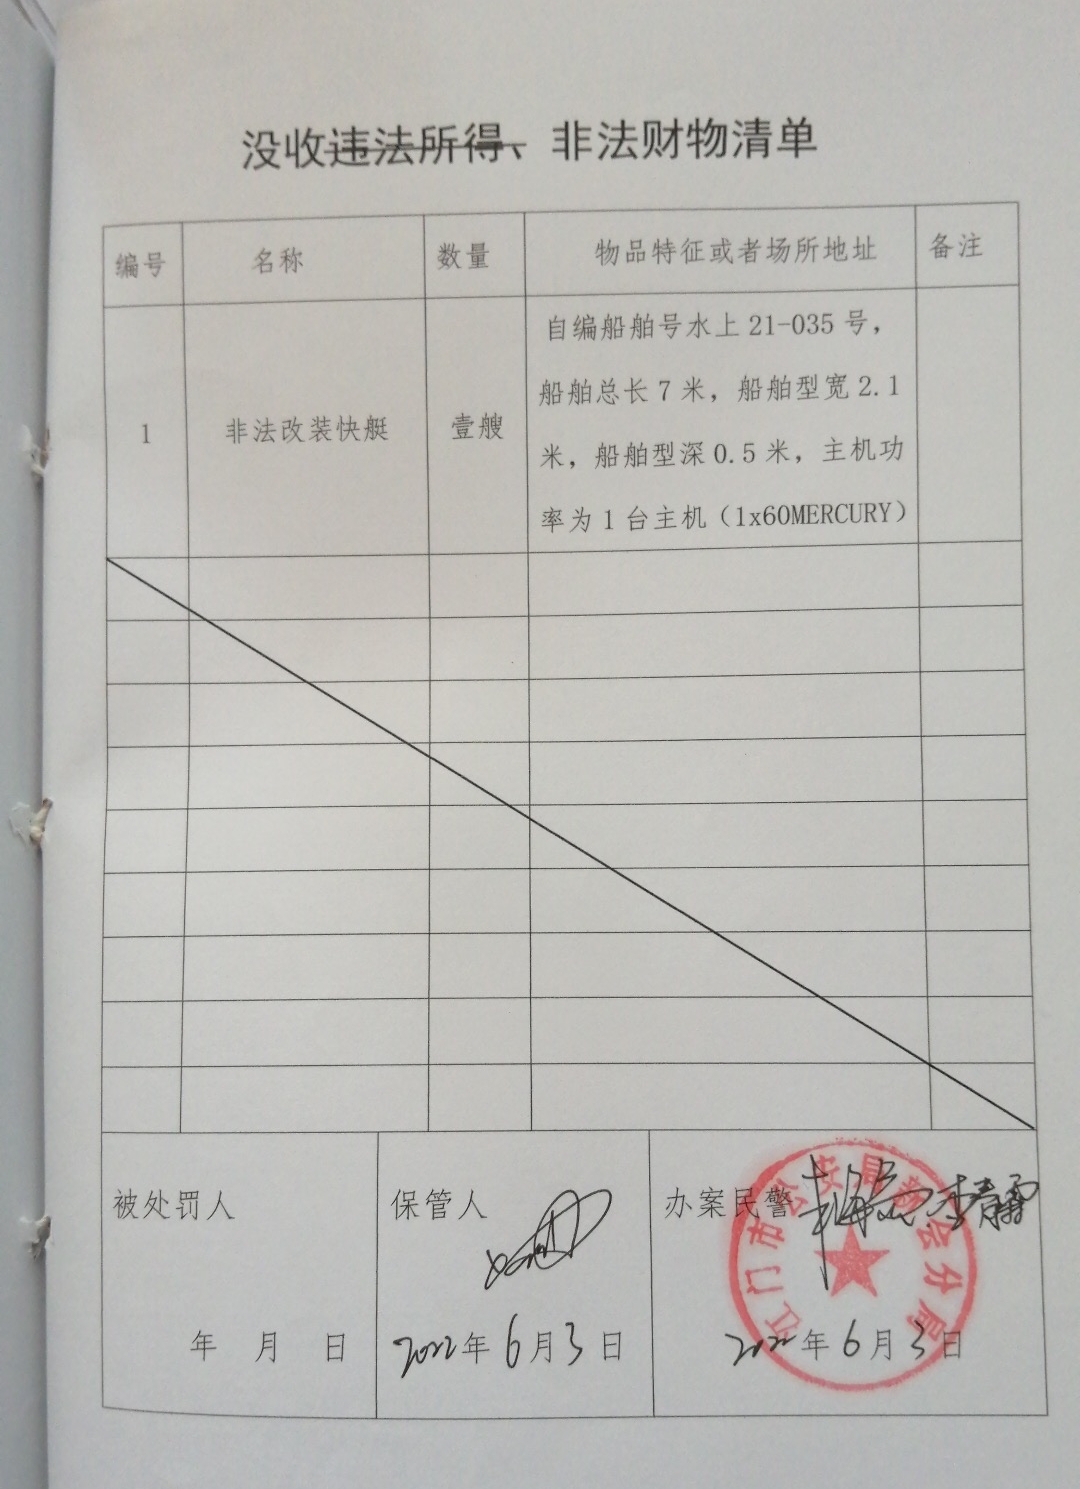 没收违法所得、非法财物清单
编号 名称 数量 物品特征或者场所地址 备注
1 非法改装快艇 壹艘 自编船舶号水上21-035号，
船舶总长7米，船舶型宽2.1
米，船舶型深0.5米，主机功
率为1台主机（1x60MERCURY）
被处罚人 保管人 办案民警
年 月 日 2022年6月3日 2022年6月3日
江门市公安局新会分局